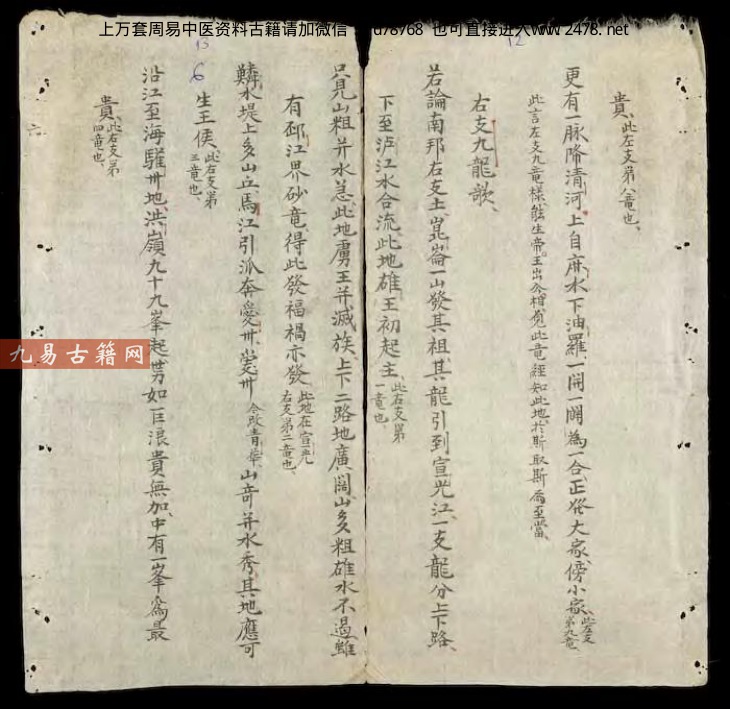 上万套周易中医资料古籍请加微信：djy8768 也可直接进入www.2478.net
12
貴、此左支第八竜也、
更有一脉降清河、上自麻水下油羅、一開一闔為一合、正從大家傍小家、此左支第九竜、
此言左支九竜樣、能生帝王出公相、覓此竜經知此地、於斯取斯為至當、
右支九龍歌、
若論南邦右支土、崑崙一山發其祖、其龍引到宣光江、一支龍分上下路、
下至泸江水合流、此地雄王初起主、此右支第一竜也、
13
只見山粗并水急、此地虜王并滅族、上下二路地廣闊、山多粗雄水不過、雖
有邳江界砂竜、得此發福禍亦發、此地在宣光右支第二竜也、
鱗水堤上多山丘、馬江引派奔愛州、愛州今改青華、山竒并水秀、其地應可
6
生王侯、此右支第三竜也、
沿江至海驩州地、洪嶺九十九峯起、勢如巨浪貴無加、中有一峯為最
貴、此右支第四竜也、
六
九易古籍网